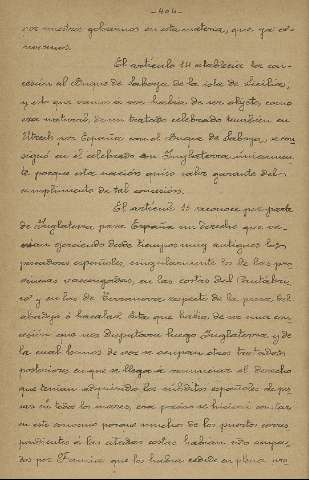 -404-
por nuestros gobiernos en esta materia, que ya co-
nocemos.
El artículo 14 establecía la con-
cesión al Duque de Saboya de la isla de Sicilia,
y esto que vamos a ver había de ser objeto, como
era natural, de un tratado celebrado también en
Utrech por España con el Duque de Saboya, se con
signó en el celebrado con Inglaterra únicamen-
te porque esta nación quiso salir garante del
cumplimiento de tal concesión.
El artículo 15 reconoce por parte
de Inglaterra para España un derecho que ve-
nían ejerciendo desde tiempos muy antiguos los
pescadores españoles, singularmente los de las pro
vincias vascongadas, en las costas del Cantábri-
co y en las de Terranova respecto de la pesca del
abadejo ó bacalao. Esta que había de ser una con
cesión que nos disputara luego Inglaterra y de
la cual hemos de ver se ocupan otros tratados
posteriores en que se llega á renunciar al derecho
que tenían adquirido los súbditos españoles de pes
car en todos los mares, era preciso se hiciera constar
en este convenio porque muchos de los puertos corres
pondientes á las citadas costas habían sido ocupa-
dos por Francia que los había cedido en plena pro